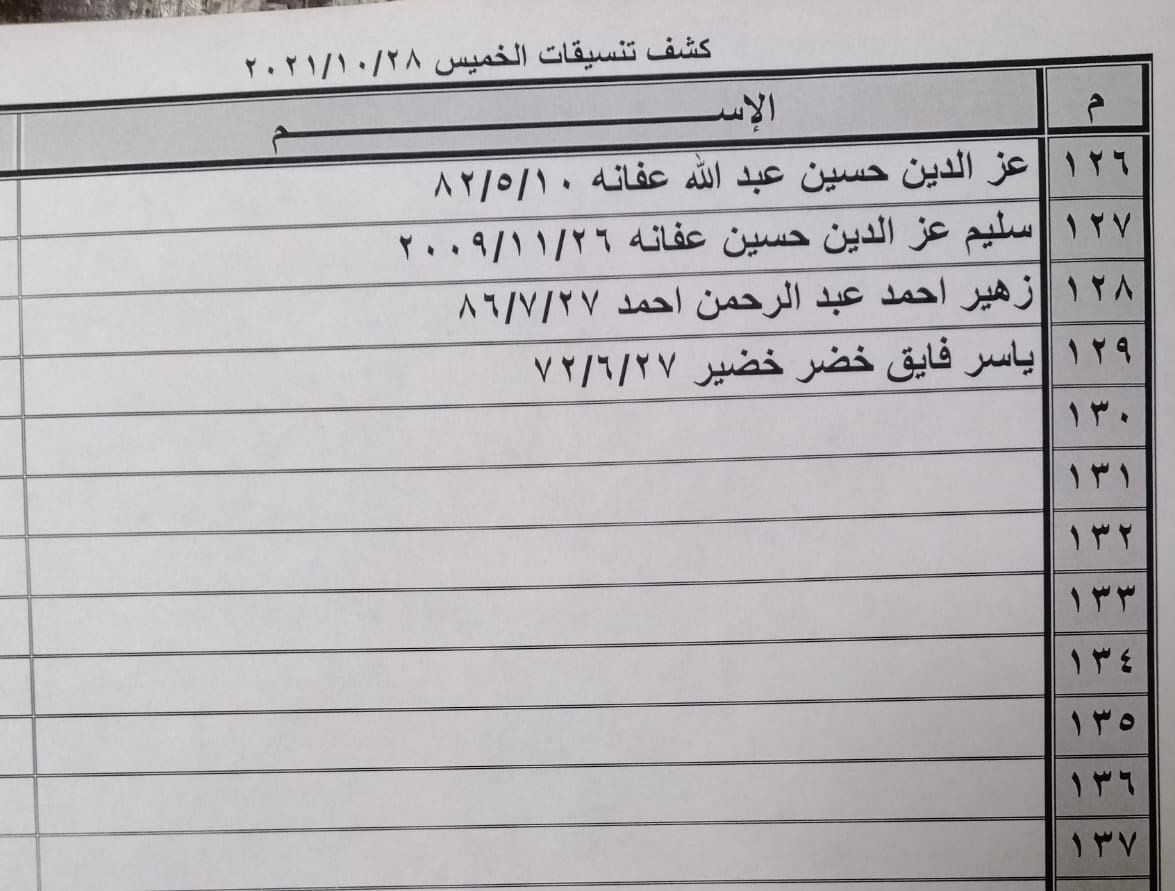 كشف تنسيقات الخميس ٢٠٢١/١٠/٢٨
م الإســـــــــــــــــم
١٢٦ عز الدين حسين عبد الله عفانه ٨٢/٥/١٠
١٢٧ سليم عز الدين حسين عفانه ٢٠٠٩/١١/٢٦
١٢٨ زهير احمد عبد الرحمن احمد ٨٦/٧/٢٧
١٢٩ ياسر فايق خضر خضير ٧٢/٦/٢٧
١٣٠
١٣١
١٣٢
١٣٣
١٣٤
١٣٥
١٣٦
١٣٧